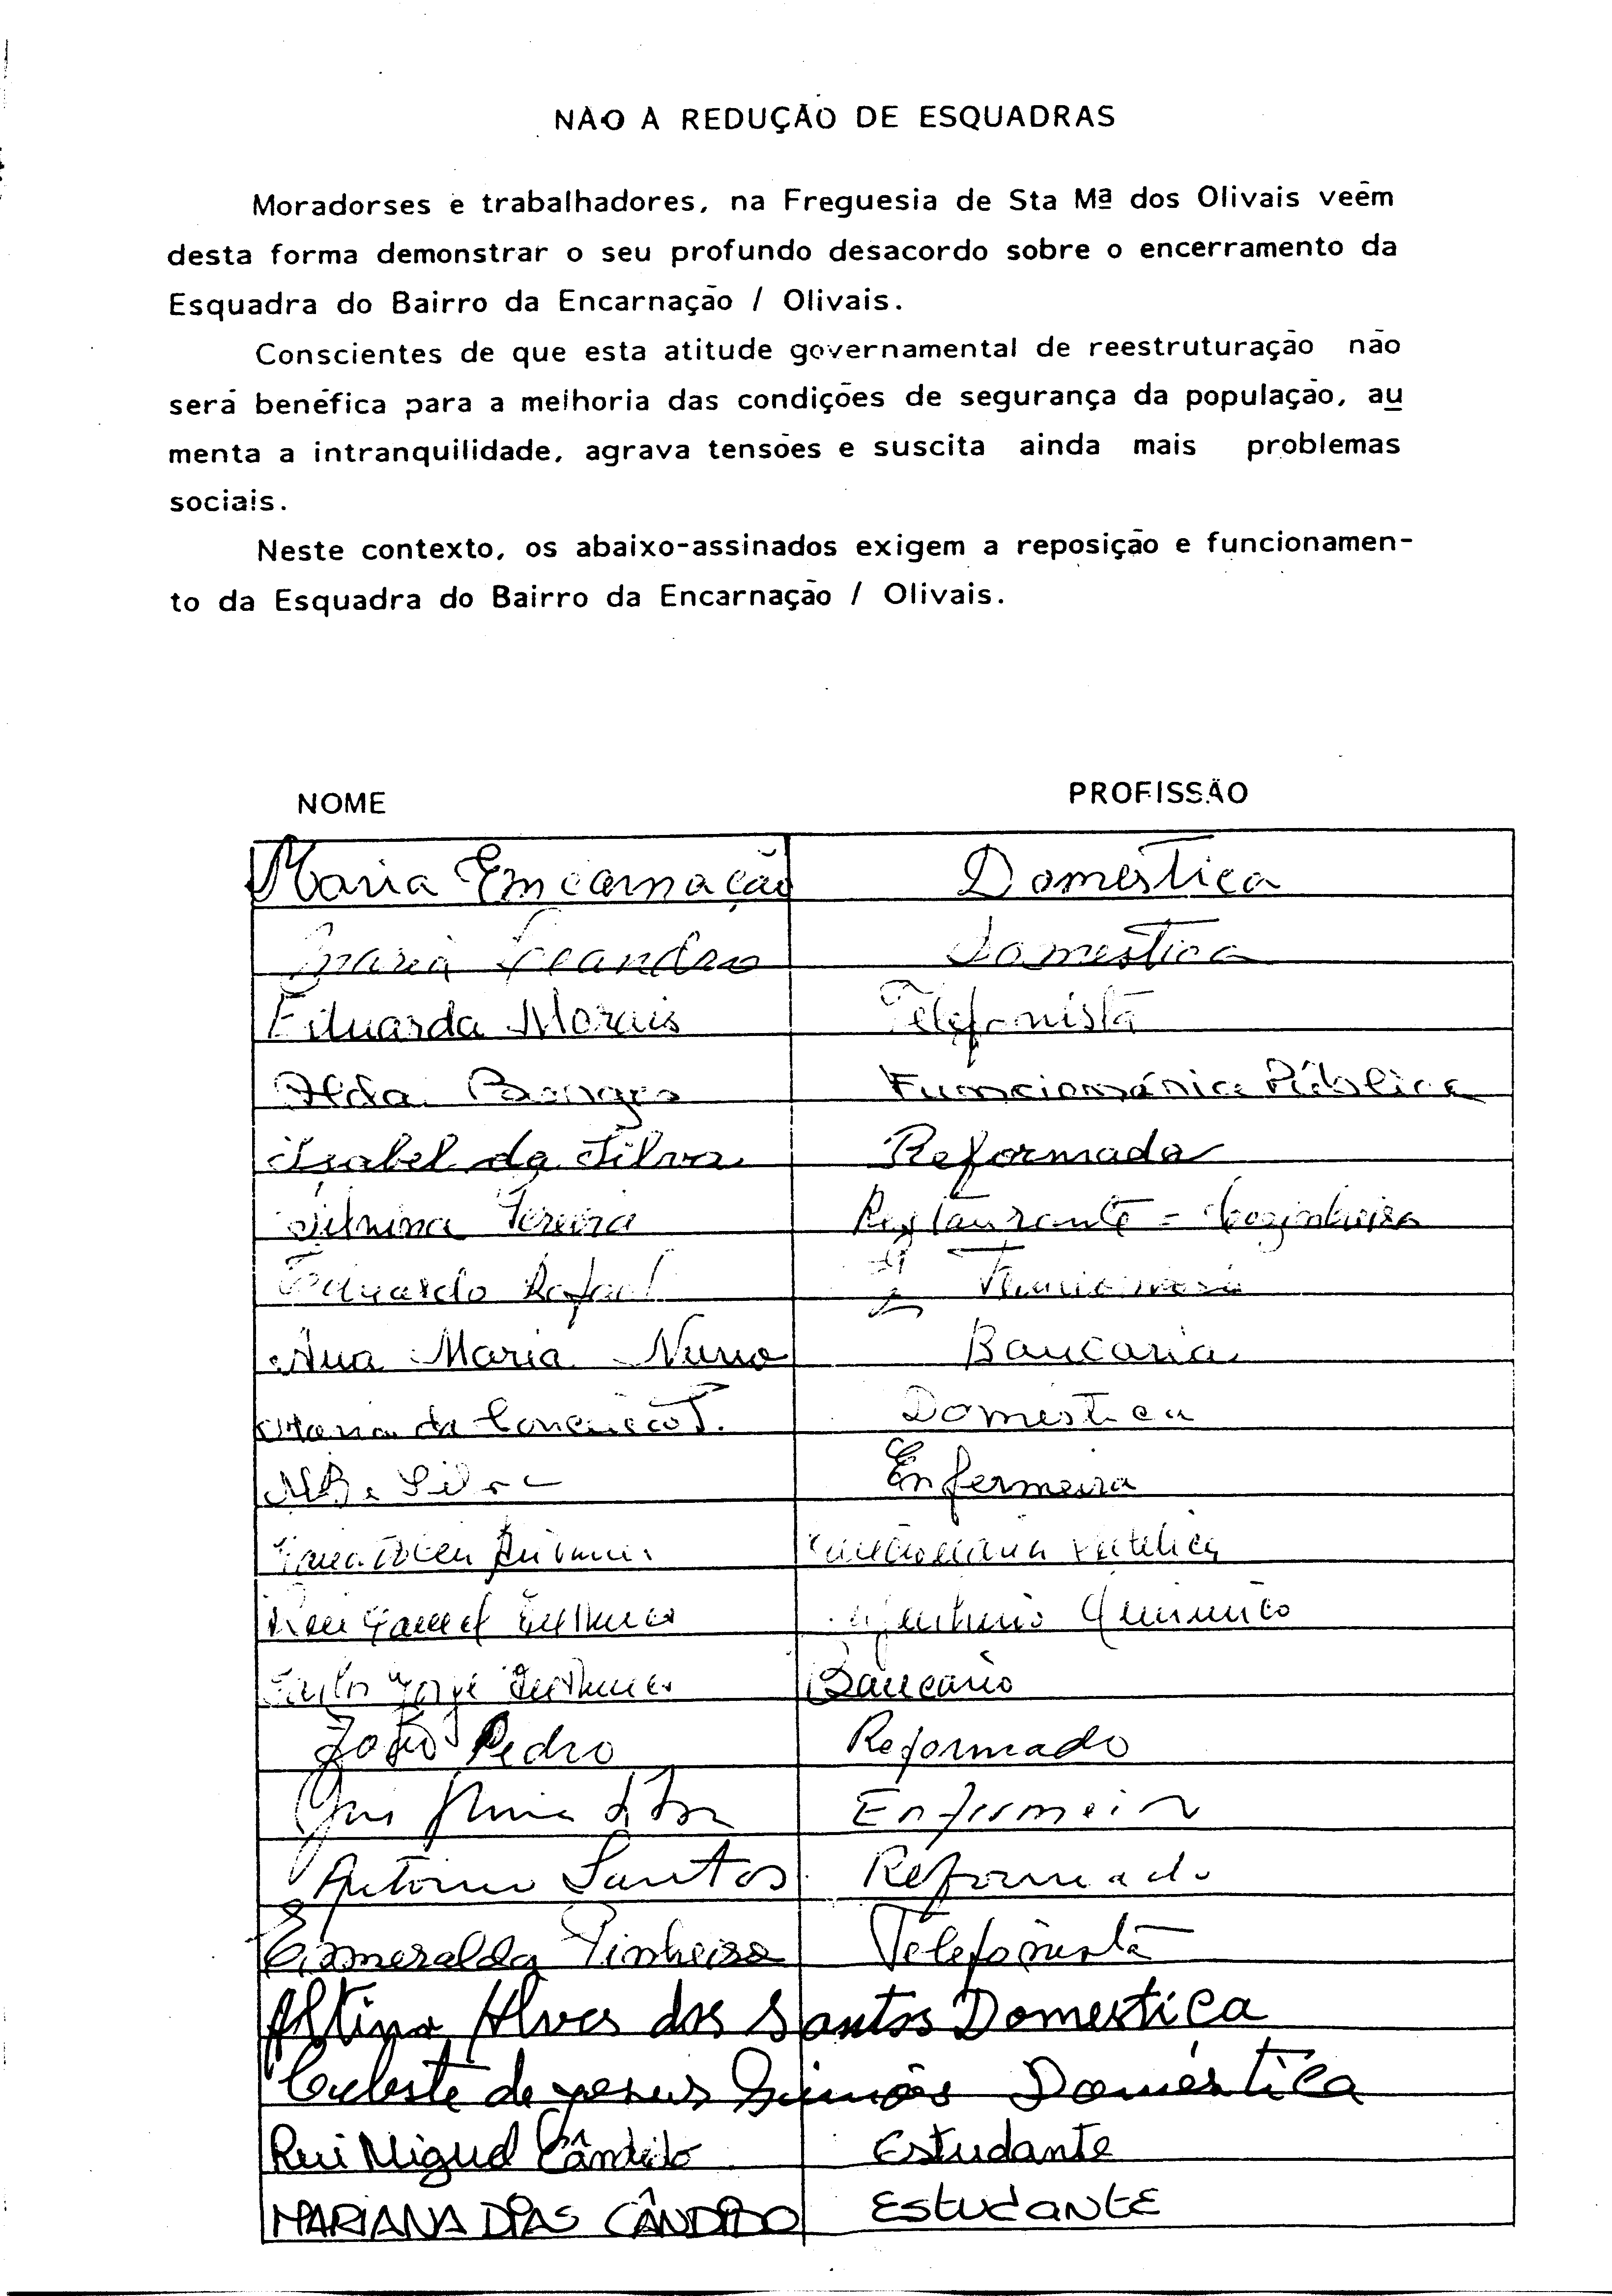 NÃO A REDUÇÃO DE ESQUADRAS
Moradorses e trabalhadores, na Freguesia de Sta Mª dos Olivais veêm
desta forma demonstrar o seu profundo desacordo sobre o encerramento da
Esquadra do Bairro da Encarnação / Olivais.
Conscientes de que esta atitude governamental de reestruturação não
será benéfica para a melhoria das condições de segurança da população, au
menta a intranquilidade, agrava tensões e suscita ainda mais problemas
sociais.
Neste contexto, os abaixo-assinados exigem a reposição e funcionamen-
to da Esquadra do Bairro da Encarnação / Olivais.
NOME PROFISSÃO
Maria Emcarnação Domestica
Maria Leandro Domestica
Eduarda Morais Telefonista
Alda Borges Funcionária Pública
Isabel da Silva Reformada
Pereira Restaurante - Cozinheira
Eduardo Rafael
Ana Maria Nuno Bancaria
Maria da Conceição T. Domestica
Silva Enfermeira
Químico
Jorge Bancário
João Pedro Reformado
Enfermeira
António Santos Reformado
Esmeralda Pinheiro Telefonista
Altina Alves dos Santos Domestica
Celeste de Jesus Simões Doméstica
Rui Miguel Cândido Estudante
MARIANA DIAS CÂNDIDO EstudantE